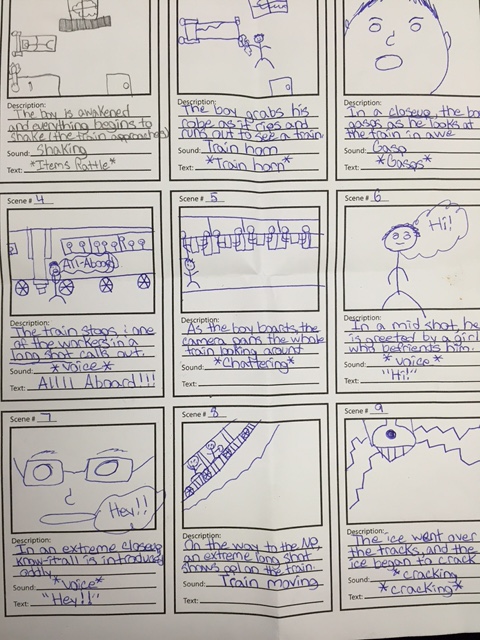 Description:
The boy is awakened
and everything begins to
shake (the train approaches)
Sound: Shaking
Text: *Items Rattle*
Description:
The boy grabs his
robe as it rips and
runs out to see a train
Sound: Train horn
Text: *Train horn*
Description:
In a closeup, the bo
gasps as he looks at
the train in awe
Sound: Gasp
Text: *Gasps*
Scene # 4
All Aboard
Description:
The train stops, & one
of the workers in a
long shot calls out.
Sound: *voice*
Text: Allll Aboard!!!
Scene # 5
Description:
As the boy boards, the
camera pans the whole
train looking around
Sound: *Chattering*
Text:
Scene # 6
Hi!
Description:
In a mid shot, he
is greeted by a girl
who befriends him.
Sound: *voice*
Text: "Hi!"
Scene # 7
Hey!!
Description:
In an extreme closeup
know-it-all is introduced
oddly
Sound: *voice*
Text: "Hey!!"
Scene # 8
Description:
On the way to the NP,
an extreme long shot
shows on the train.
Sound: Train moving
Text:
Scene # 9
Description:
The ice went over
the tracks, and the
ice began to crack
Sound: *cracking*
Text: *cracking*